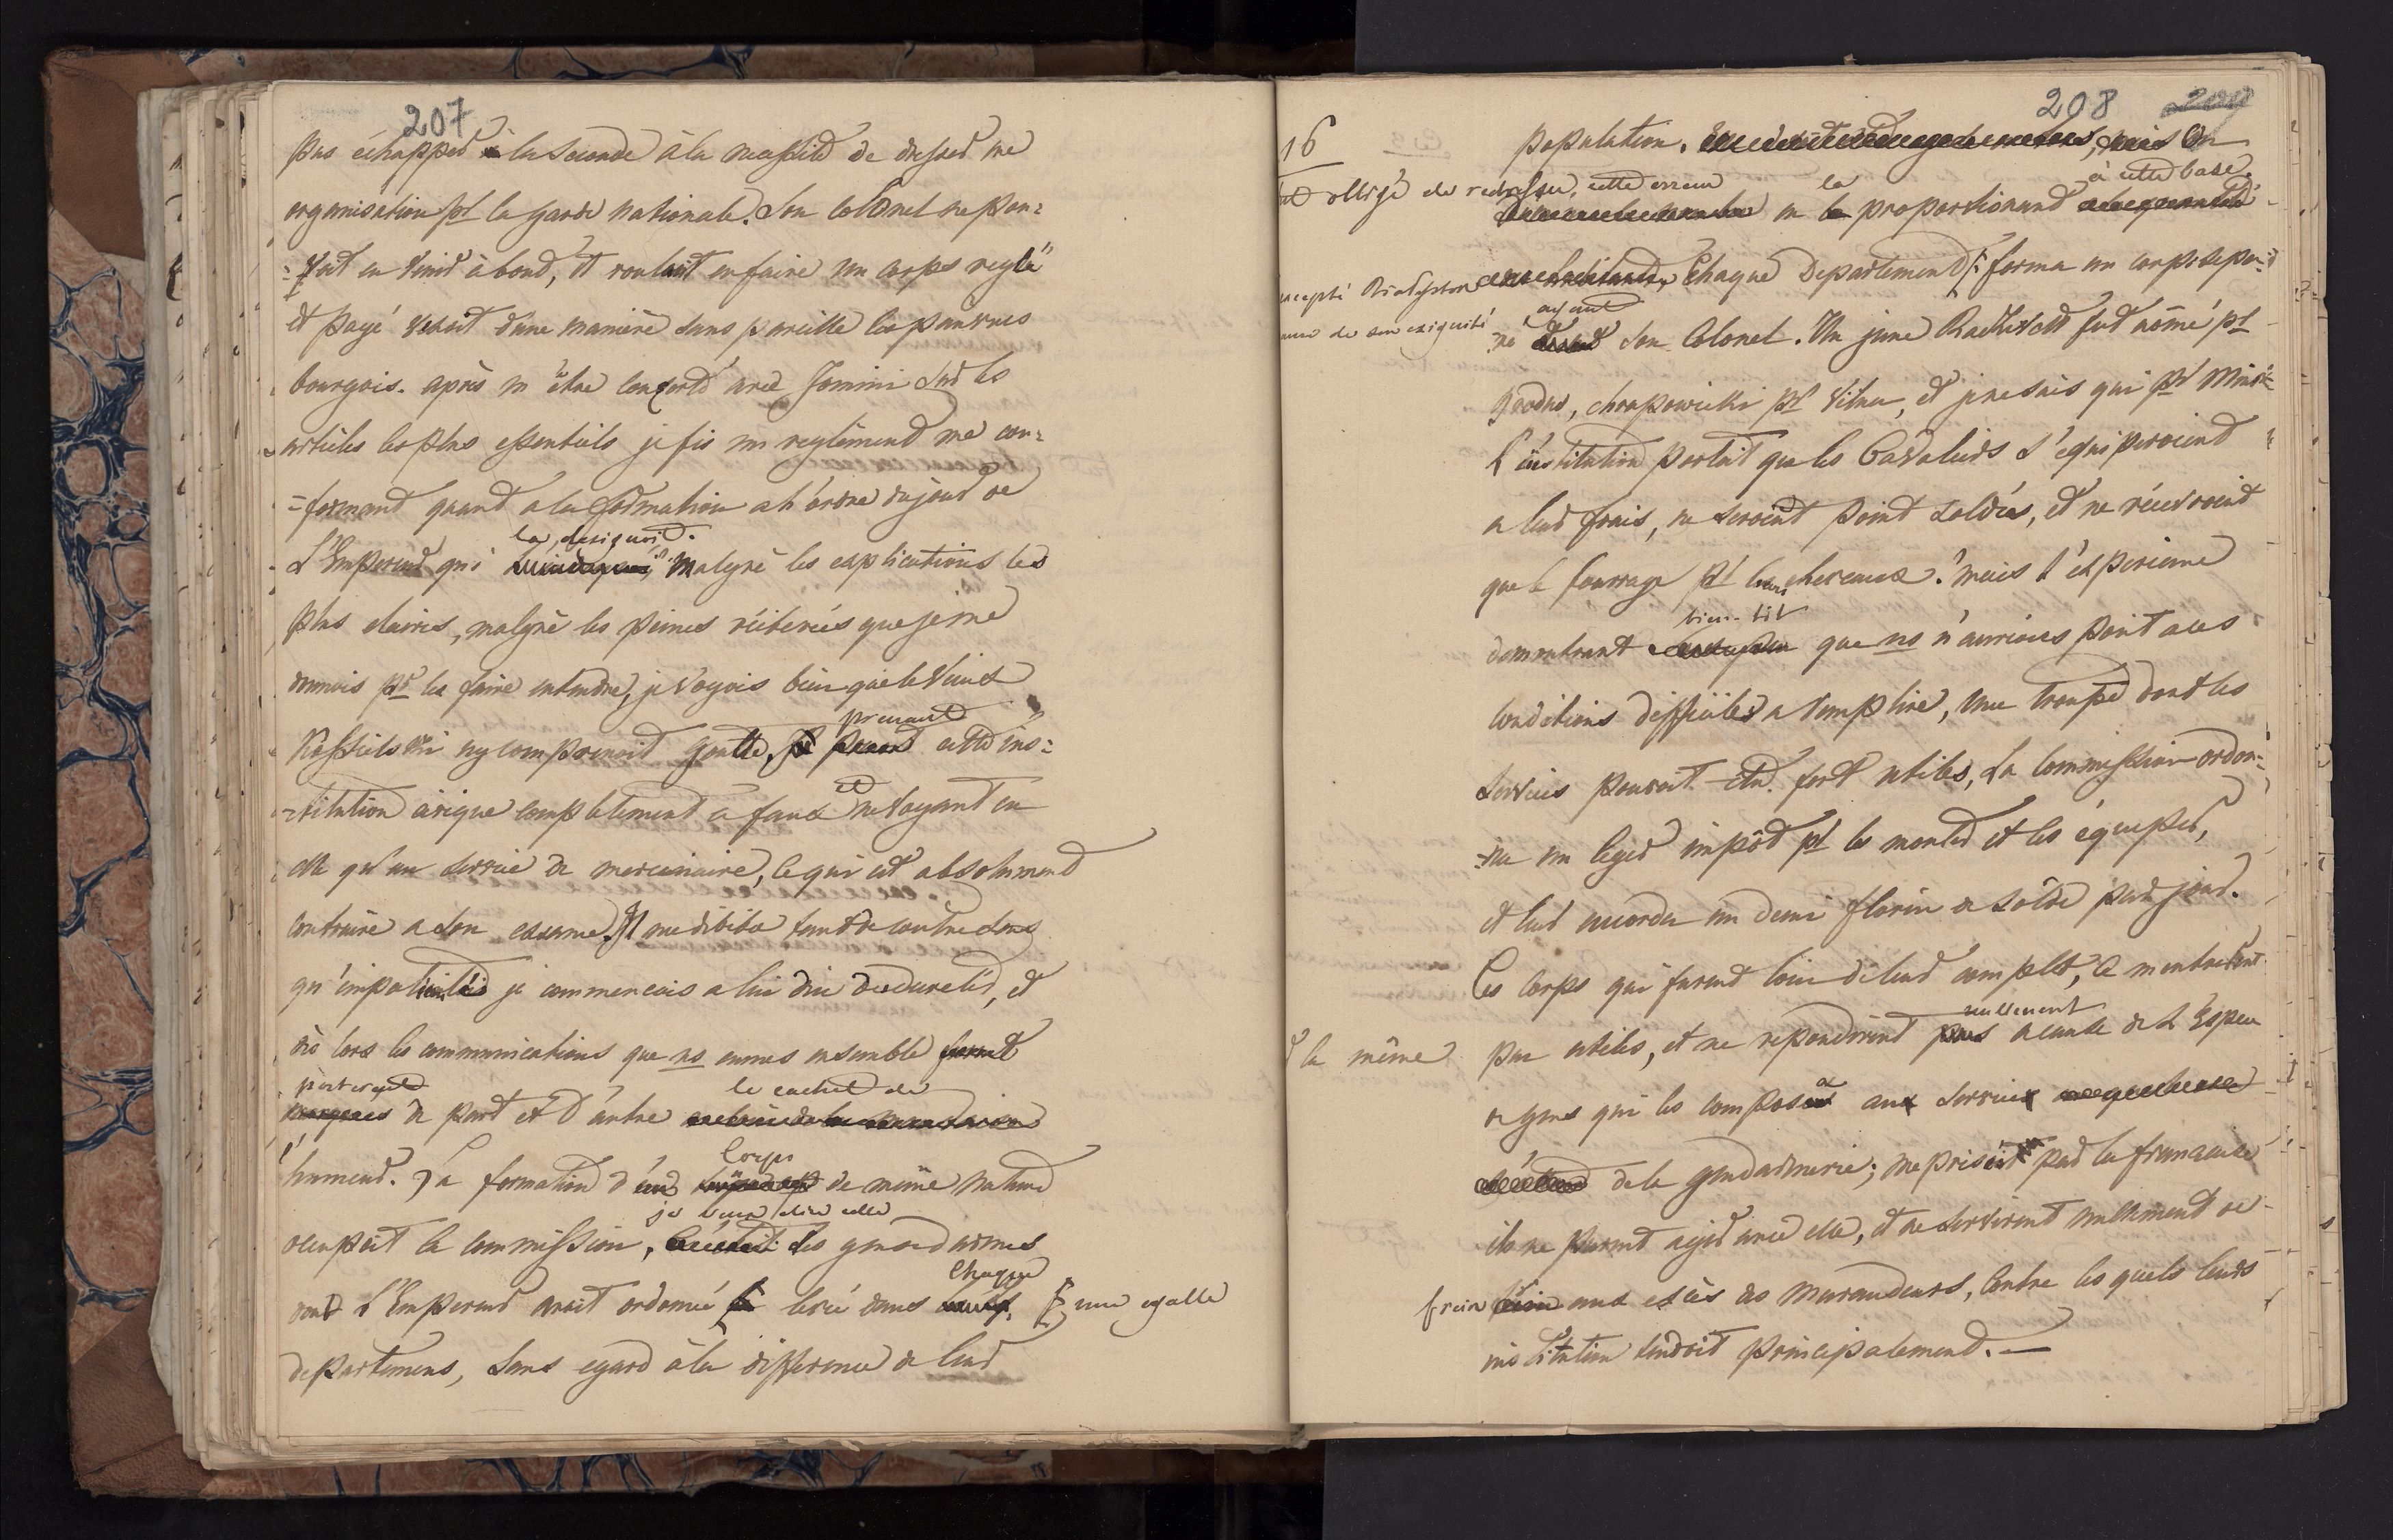 207
pas échapper à la seconde à la necessité de dresser une
organisation pr la garde nationale. Son Colonel ne pou=
=vait en venir à bout, et voulait en faire un corps reglé
et payé vexait d'une manière sans pareille les pauvres
bourgois. après m'être concerté avec Jomini sur les
articles les plus essentiels je fis un reglement me con=
=formant quant a la formation a l'ordre du jour de
la designoit.
L'Empereur qui malgré les explications les
plus claires, malgré les peines réiterées que je me
donnois pr les faire entendre, je voyois bien que le vieux
prenant
Kossielski ny comprenoit goutte, cette ins=
=titution civique completement à faux et ne voyant en
elle qu'un service de mercenaire, ce qui est absolument
contraire a son essence. Il me débita tant de contre sens
qu'impatienté je commencois a lui dire des duretés, et
dès lors les communications que ns eumes ensemble furent
porterent le cachet de
de part et d'autre
l'humeur. La formation d'un Corps de même nature
je veux dire celle
occupoit la commission, des gensdarmes
chaque
dont L'Empereur avoit ordonné la levée dans une egalle
departemens, sans egard à la difference de leur
208
16
population. mais On
à cette base.
fut obligé de redresser cette erreur en la proportionant
excepté Bialystok Chaque Departement forma un corps separé
ayant
cause de son exiguité son Colonel. Un jeune Radziwill fut nômé pr
Grodno, Chrapowicki pr Vilna, et je ne sais qui pr Minsk
L'institution portait que les Cavaliers s'equiperoient
a leur frais, ne seroient point soldés, et ne récevroient
que le fourrage pr leurs chevaux. mais l'experience
bien-tôt
demontrant que ns n'aurions point a ces
conditions difficiles a remplire, une troupe dont les
services pouvoit etre fort utiles, La Commission ordon=
=na un leger impôt pr les monter et les équiper,
et leur accorda un demi florin de solde par jour.
Ces Corps qui furent loin de leur complet, se montrerent
nullement
peu utiles, et ne repondirent a cause de L'Espece
d la même
de gens qui les composa aux service
de la gendarmerie; meprisée par la francaise
ils ne purent agir avec elle, et ne servirent nullement de
frein aux excès des Maraudeurs, contre les quels leurs
institution tendoit principalement.—